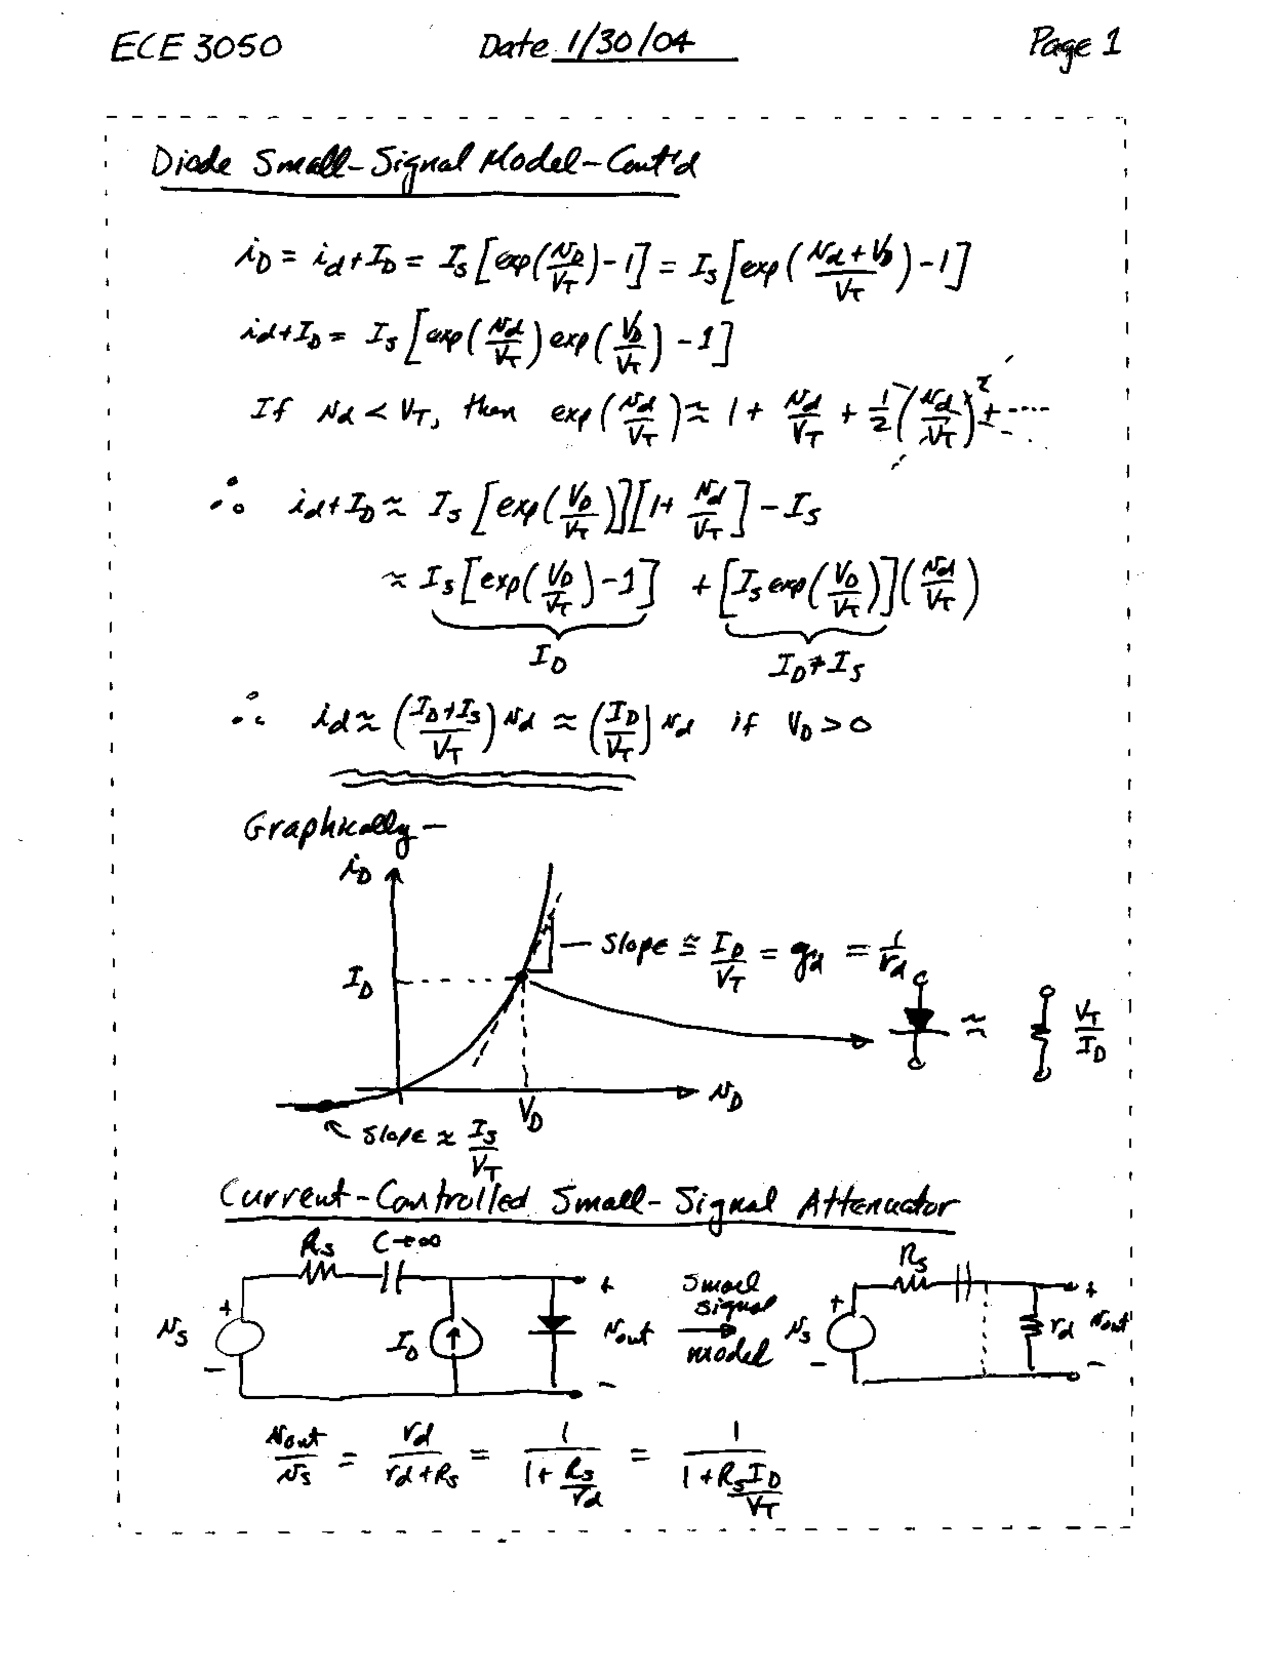 ECE 3050 Date 1/30/04 Page 1
Diode Small-Signal Model-Cont'd
i_D = i_d + I_D = I_S [exp(v_D/V_T) - 1] = I_S [exp((v_d + V_D)/V_T) - 1]
i_d + I_D = I_S [exp(v_d/V_T) exp(V_D/V_T) - 1]
If v_d < V_T, then exp(v_d/V_T) ≈ 1 + v_d/V_T + 1/2 (v_d/V_T)^2 + ....
∴ i_d + I_D ≈ I_S [exp(V_D/V_T)][1 + v_d/V_T] - I_S
≈ I_S [exp(V_D/V_T) - 1] + [I_S exp(V_D/V_T)](v_d/V_T)
I_D I_D + I_S
∴ i_d ≈ ((I_D + I_S)/V_T) v_d ≈ (I_D/V_T) v_d if V_D > 0
Graphically -
i_D
Slope ≅ I_D/V_T = g_d = 1/r_d
I_D
≈ V_T/I_D
V_D v_D
Slope ≈ I_S/V_T
Current-Controlled Small-Signal Attenuator
R_S C→∞ R_S
+ + Small signal model + +
v_S I_D v_out v_S r_d v_out
- - - -
v_out/v_S = r_d/(r_d + R_S) = 1/(1 + R_S/r_d) = 1/(1 + R_S I_D/V_T)